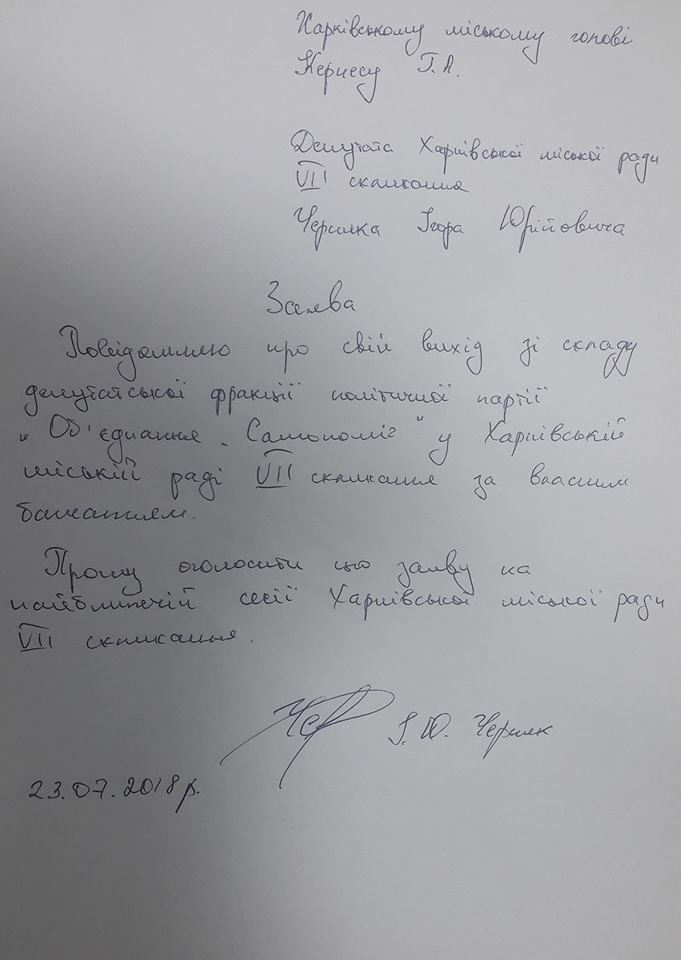 Харківському міському голові
Кернесу Г.А.
Депутата Харківської міської ради
VII скликання
Черняка Ігора Юрійовича
Заява
Повідомляю про свій вихід зі складу
депутатської фракції політичної партії
"Об'єднання "Самопоміг" у Харківській
міській раді VII скликання за власним
бажанням.
Прошу оголосити цю заяву на
найближчій сесії Харківської міської ради
VII скликання.
І.Ю. Черняк
23.07.2018 р.